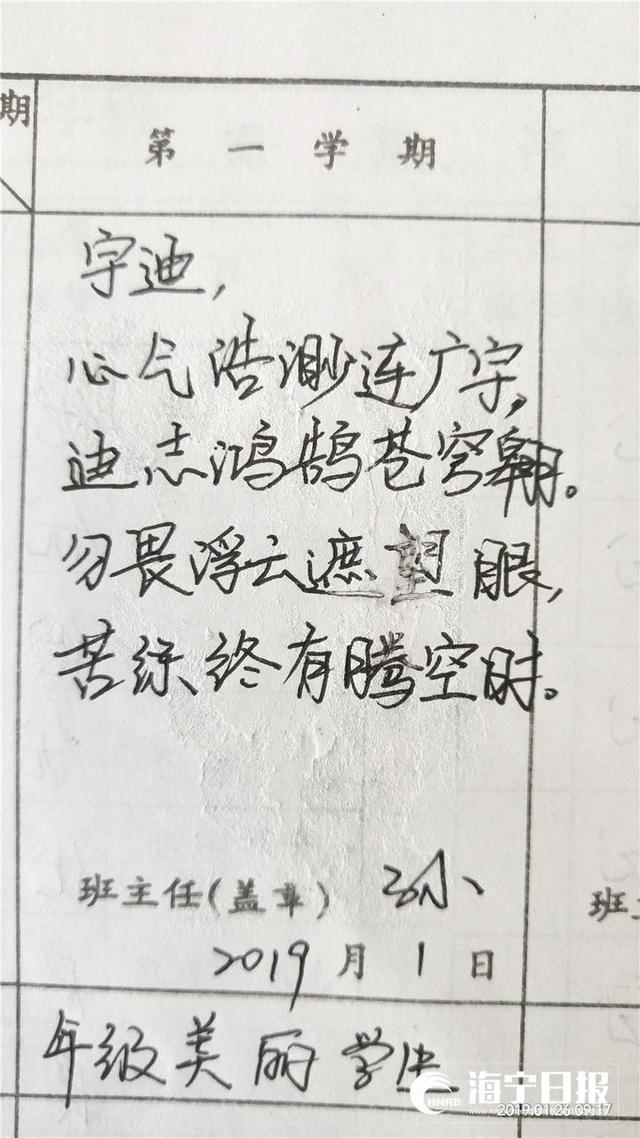 期
第一学期
宇迪,
心气浩渺连广宇,
迪志鸿鹄苍穹翱。
勿畏浮云遮望眼,
苦练终有腾空时。
班主任(盖章)
班
2019 月 1 日
年级美丽学生
HNRB 海宁日报
2019.01.26 09:17